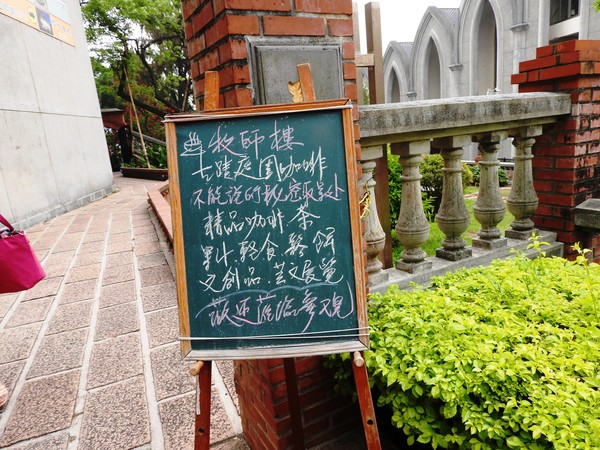 牧師樓
古蹟庭園咖啡
不能說的秘密取景处
精品咖啡.茶
果汁.輕食.鬆餅
文創品.藝文展覽
歡迎蒞臨參觀